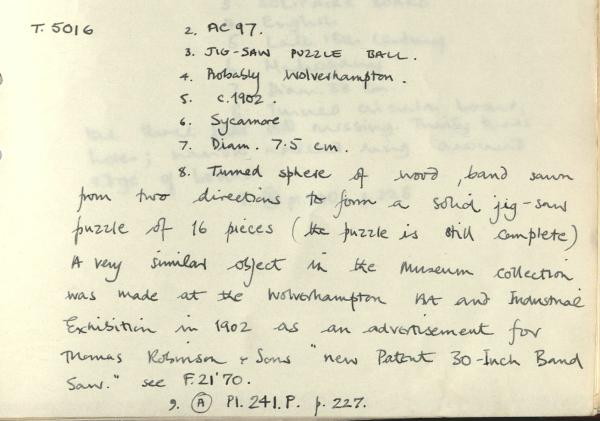 T. 5016 2. AC 97.
3. JIG-SAW PUZZLE BALL.
4. Probably Wolverhampton.
5. c.1902.
6. Sycamore
7. Diam. 7.5 cm.
8. Turned sphere of wood, band sawn
from two directions to form a solid jig-saw
puzzle of 16 pieces (the puzzle is still complete)
A very similar object in the Museum collection
was made at the Wolverhampton Art and Industrial
Exhibition in 1902 as an advertisement for
Thomas Robinson & Sons "new Patent 30-Inch Band
Saw." see F.21'70.
9. (A) Pl. 241.P. p. 227.